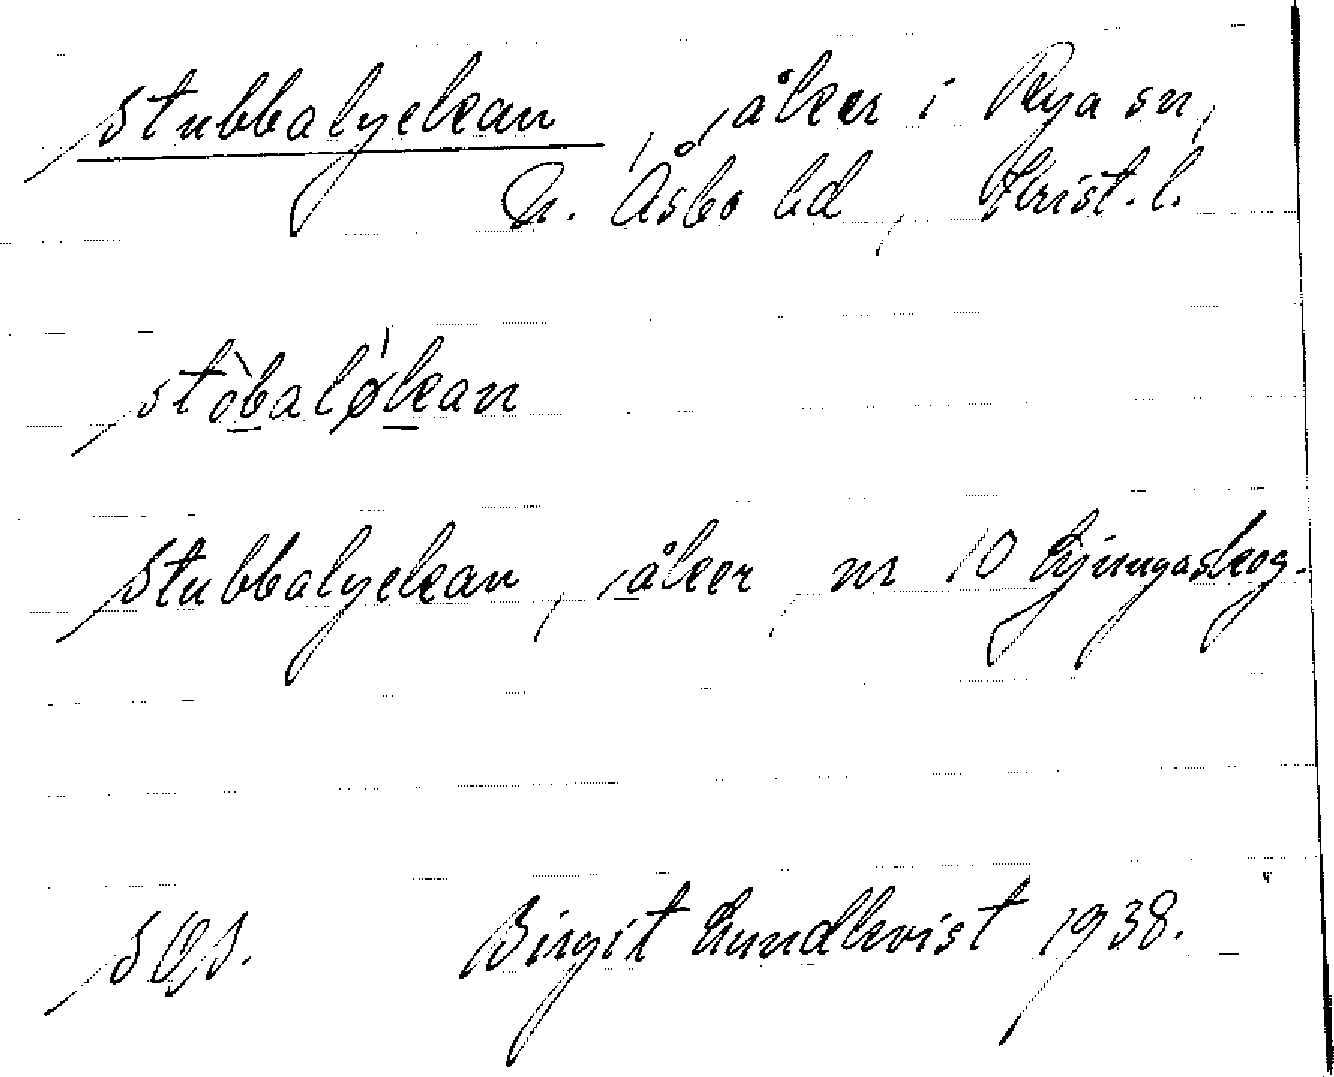 Stubbalyckan, åker i Rya sn,
N. Åsbo hd, Krist. l.
stòbaløkan
Stubbalyckan, åker, nr 10 Ljungaskog.
Birgit Lundkvist 1938.